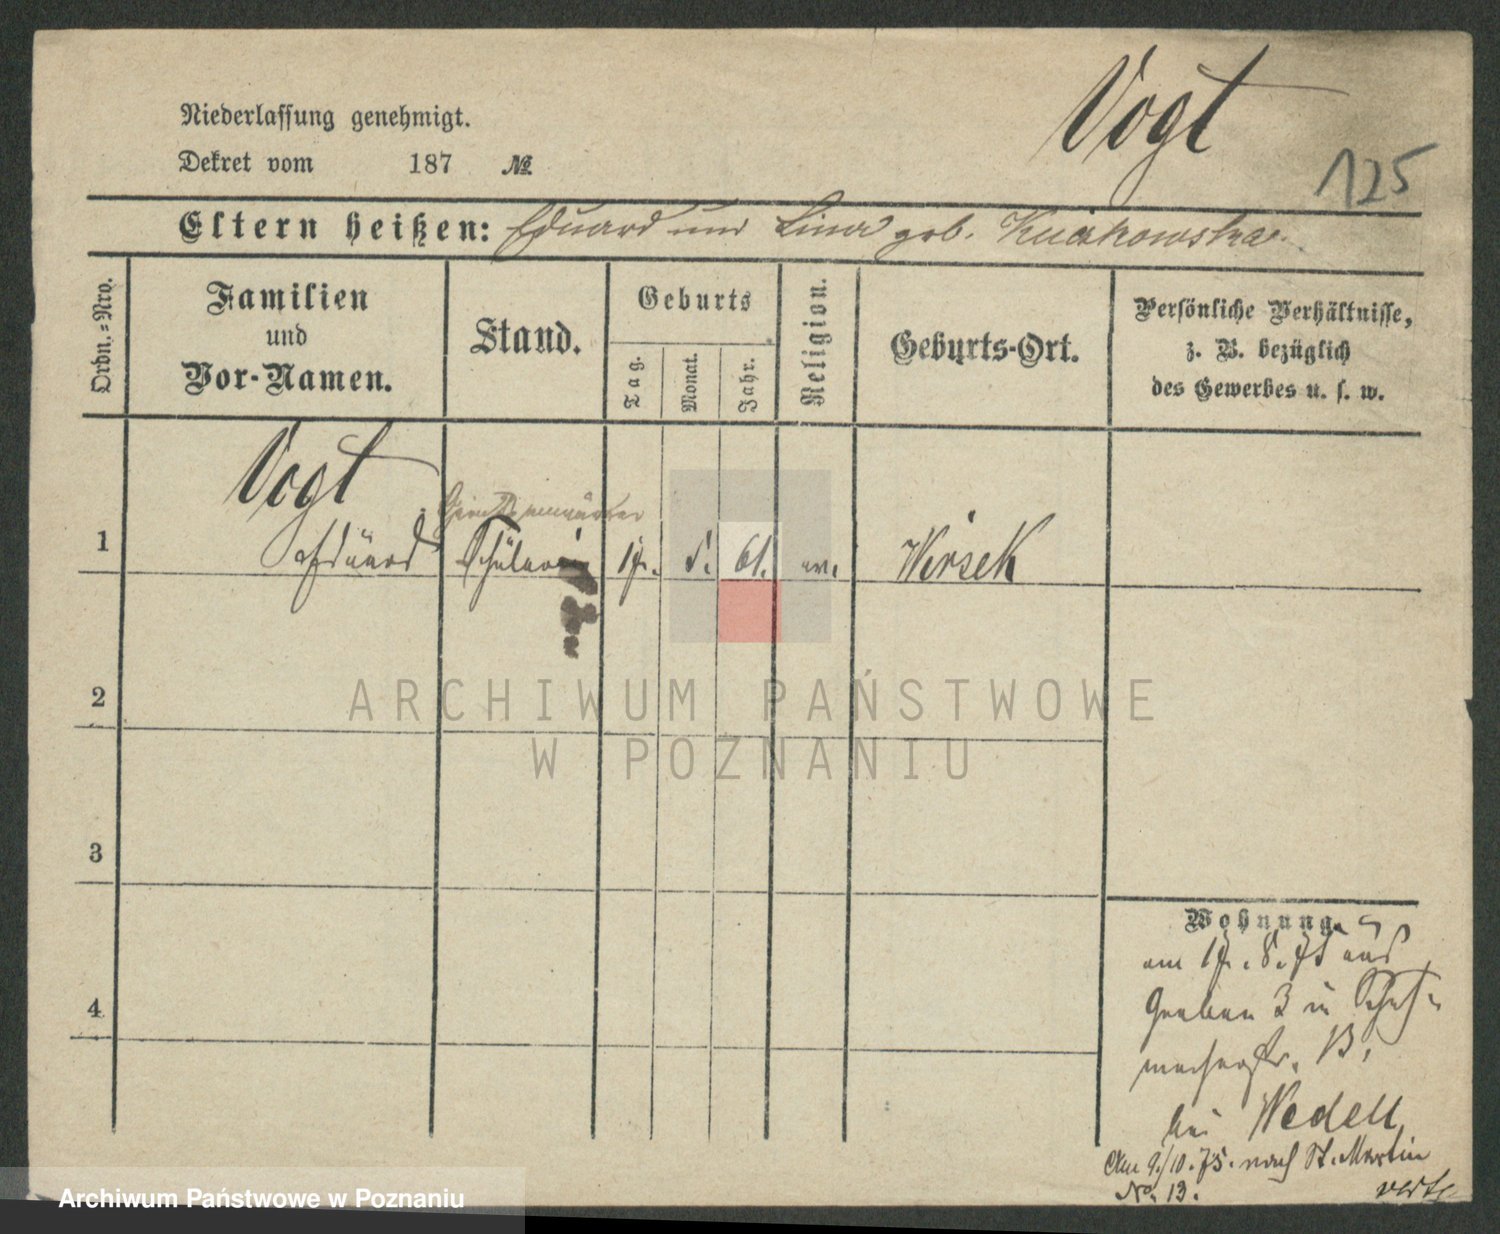 Vogt
125
Niederlassung genehmigt.
Dekret vom 187 №
Eltern heißen: Eduard und Lina geb.
Ordn.=Nro.
Familien
und
Vor-Namen.
Stand.
Geburts
Tag.
Monat.
Jahr.
Religion.
Geburts-Ort.
Persönliche Verhältnisse,
z. B. bezüglich
des Gewerbes u. s. w.
Vogt
1 Eduard Schüler 17. 5. 61. ev. Wirsek
2
3
4
ARCHIWUM PAŃSTWOWE
W POZNANIU
Wohnung.
am 17. 8. 75 aus
Graben 3 in Schuh-
macherstr. 13,
bei Wedell
Am 9/10. 75. nach St. Martin
No. 13.
verte
Archiwum Państwowe w Poznaniu